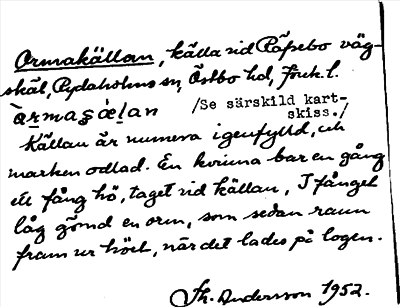 Ormakällan, källa vid Påfvebo väg-
skäl, Rydaholms sn, Östbo hd, Jönk. l.
àrmaʂǽlan /Se särskild kart-
skiss./
Källan är numera igenfylld, och
marken odlad. En kvinna bar en gång
ett fång hö, taget vid källan, I fånget
låg gömd en orm, som sedan rann
fram ur höet, när det lades på logen.
Th. Andersson 1952.